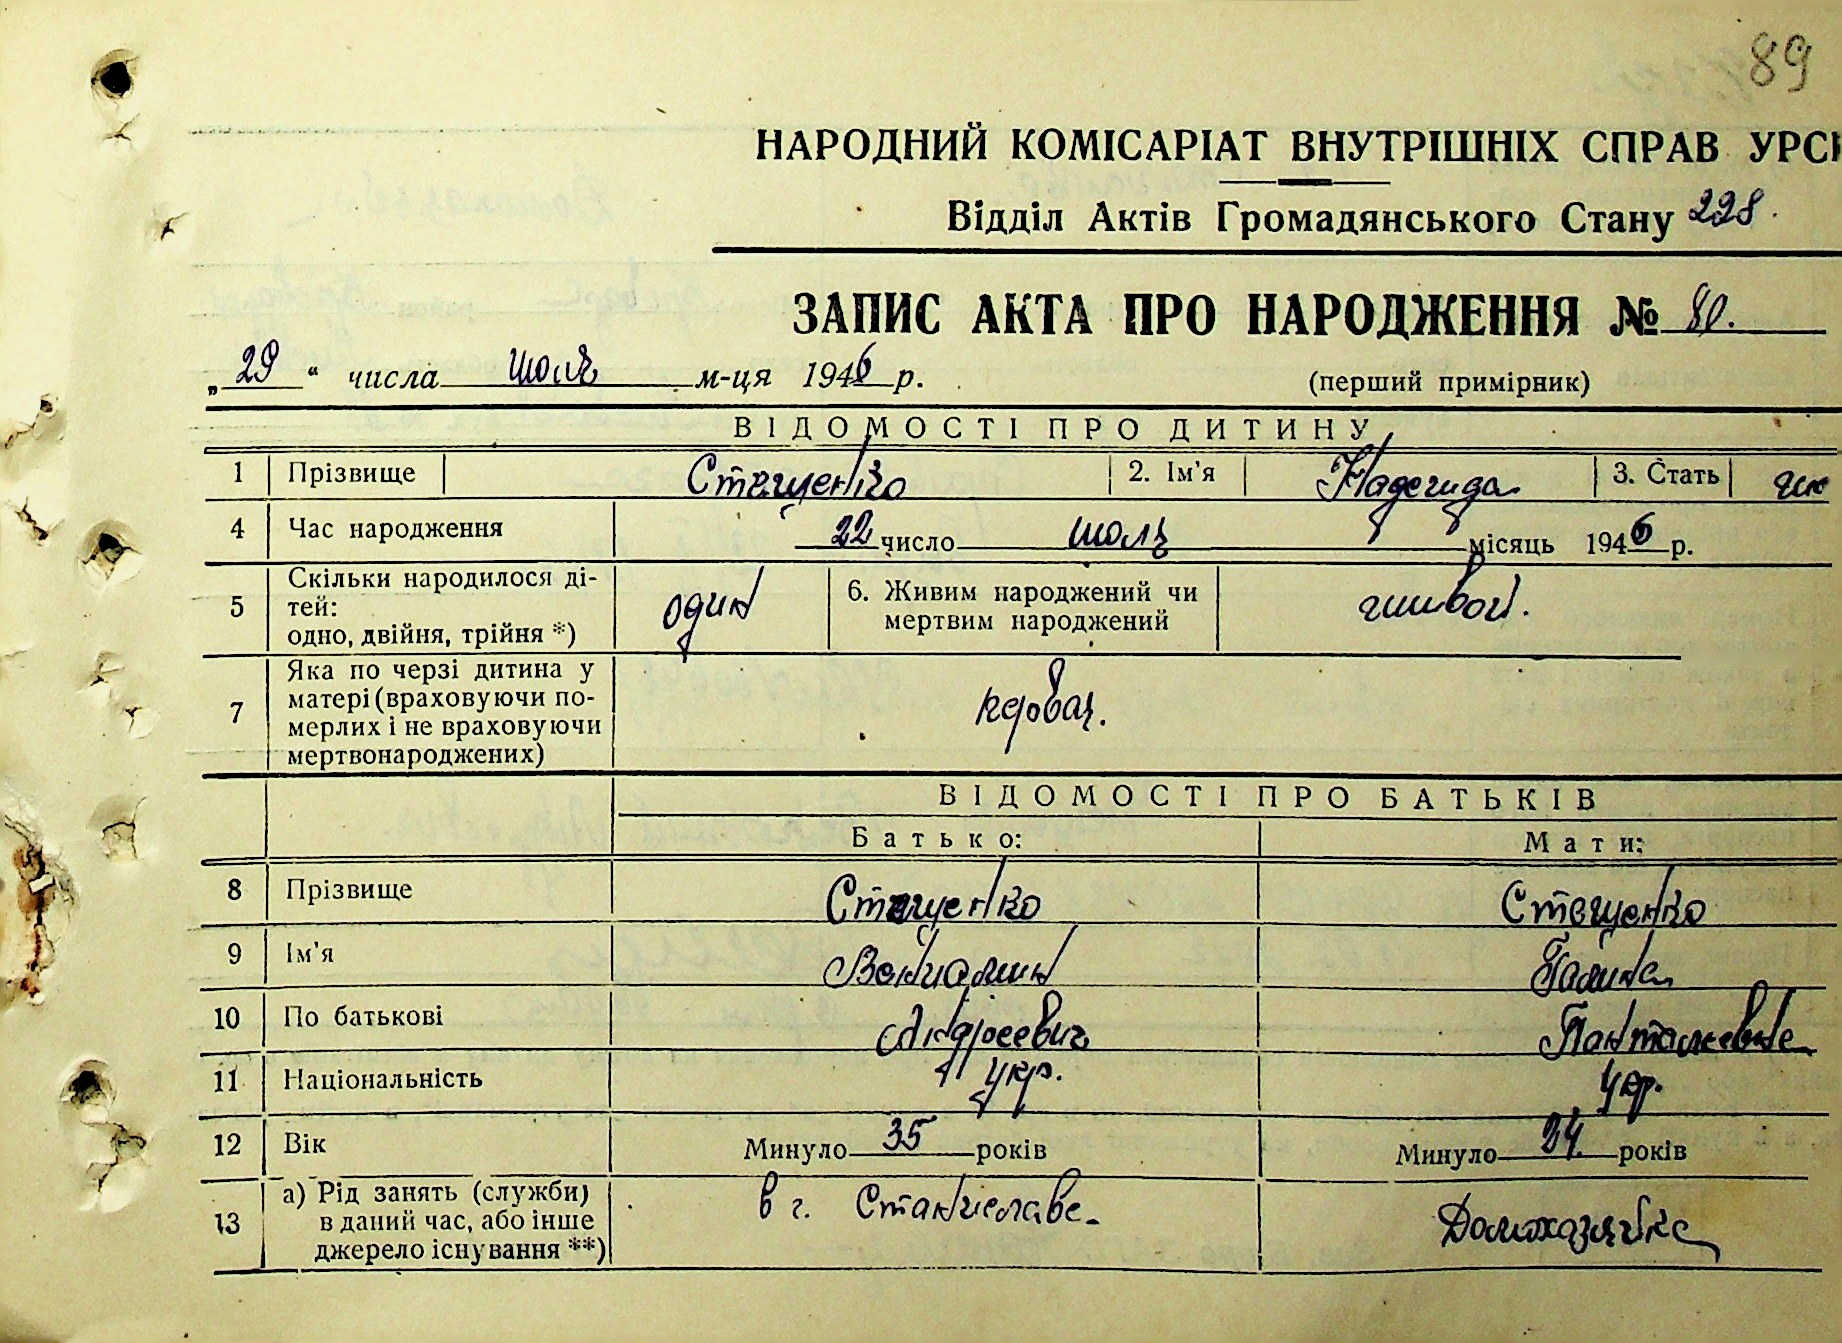 89
НАРОДНИЙ КОМІСАРІАТ ВНУТРІШНІХ СПРАВ УРС
Відділ Актів Громадянського Стану 228.
ЗАПИС АКТА ПРО НАРОДЖЕННЯ № 80.
„29“ числа июля м-ця 1946 р. (перший примірник)
ВІДОМОСТІ ПРО ДИТИНУ
1 Прізвище Стеценко 2. Ім'я Надежда 3. Стать жс
4 Час народження 22 число июля місяць 1946 р.
5 Скільки народилося ді-
тей:
одно, двійня, трійня *) один 6. Живим народжений чи
мертвим народжений живой.
7 Яка по черзі дитина у
матері (враховуючи по-
мерлих і не враховуючи
мертвонароджених) первая.
ВІДОМОСТІ ПРО БАТЬКІВ
Батько: Мати:
8 Прізвище Стеценко Стеценко
9 Ім'я Вениамин Галина
10 По батькові Андреевич Пантелеевна
11 Національність укр. укр.
12 Вік Минуло 35 років Минуло 24 років
13 а) Рід занять (служби)
в даний час, або інше
джерело існування **) в г. Станиславе Домохозяйка